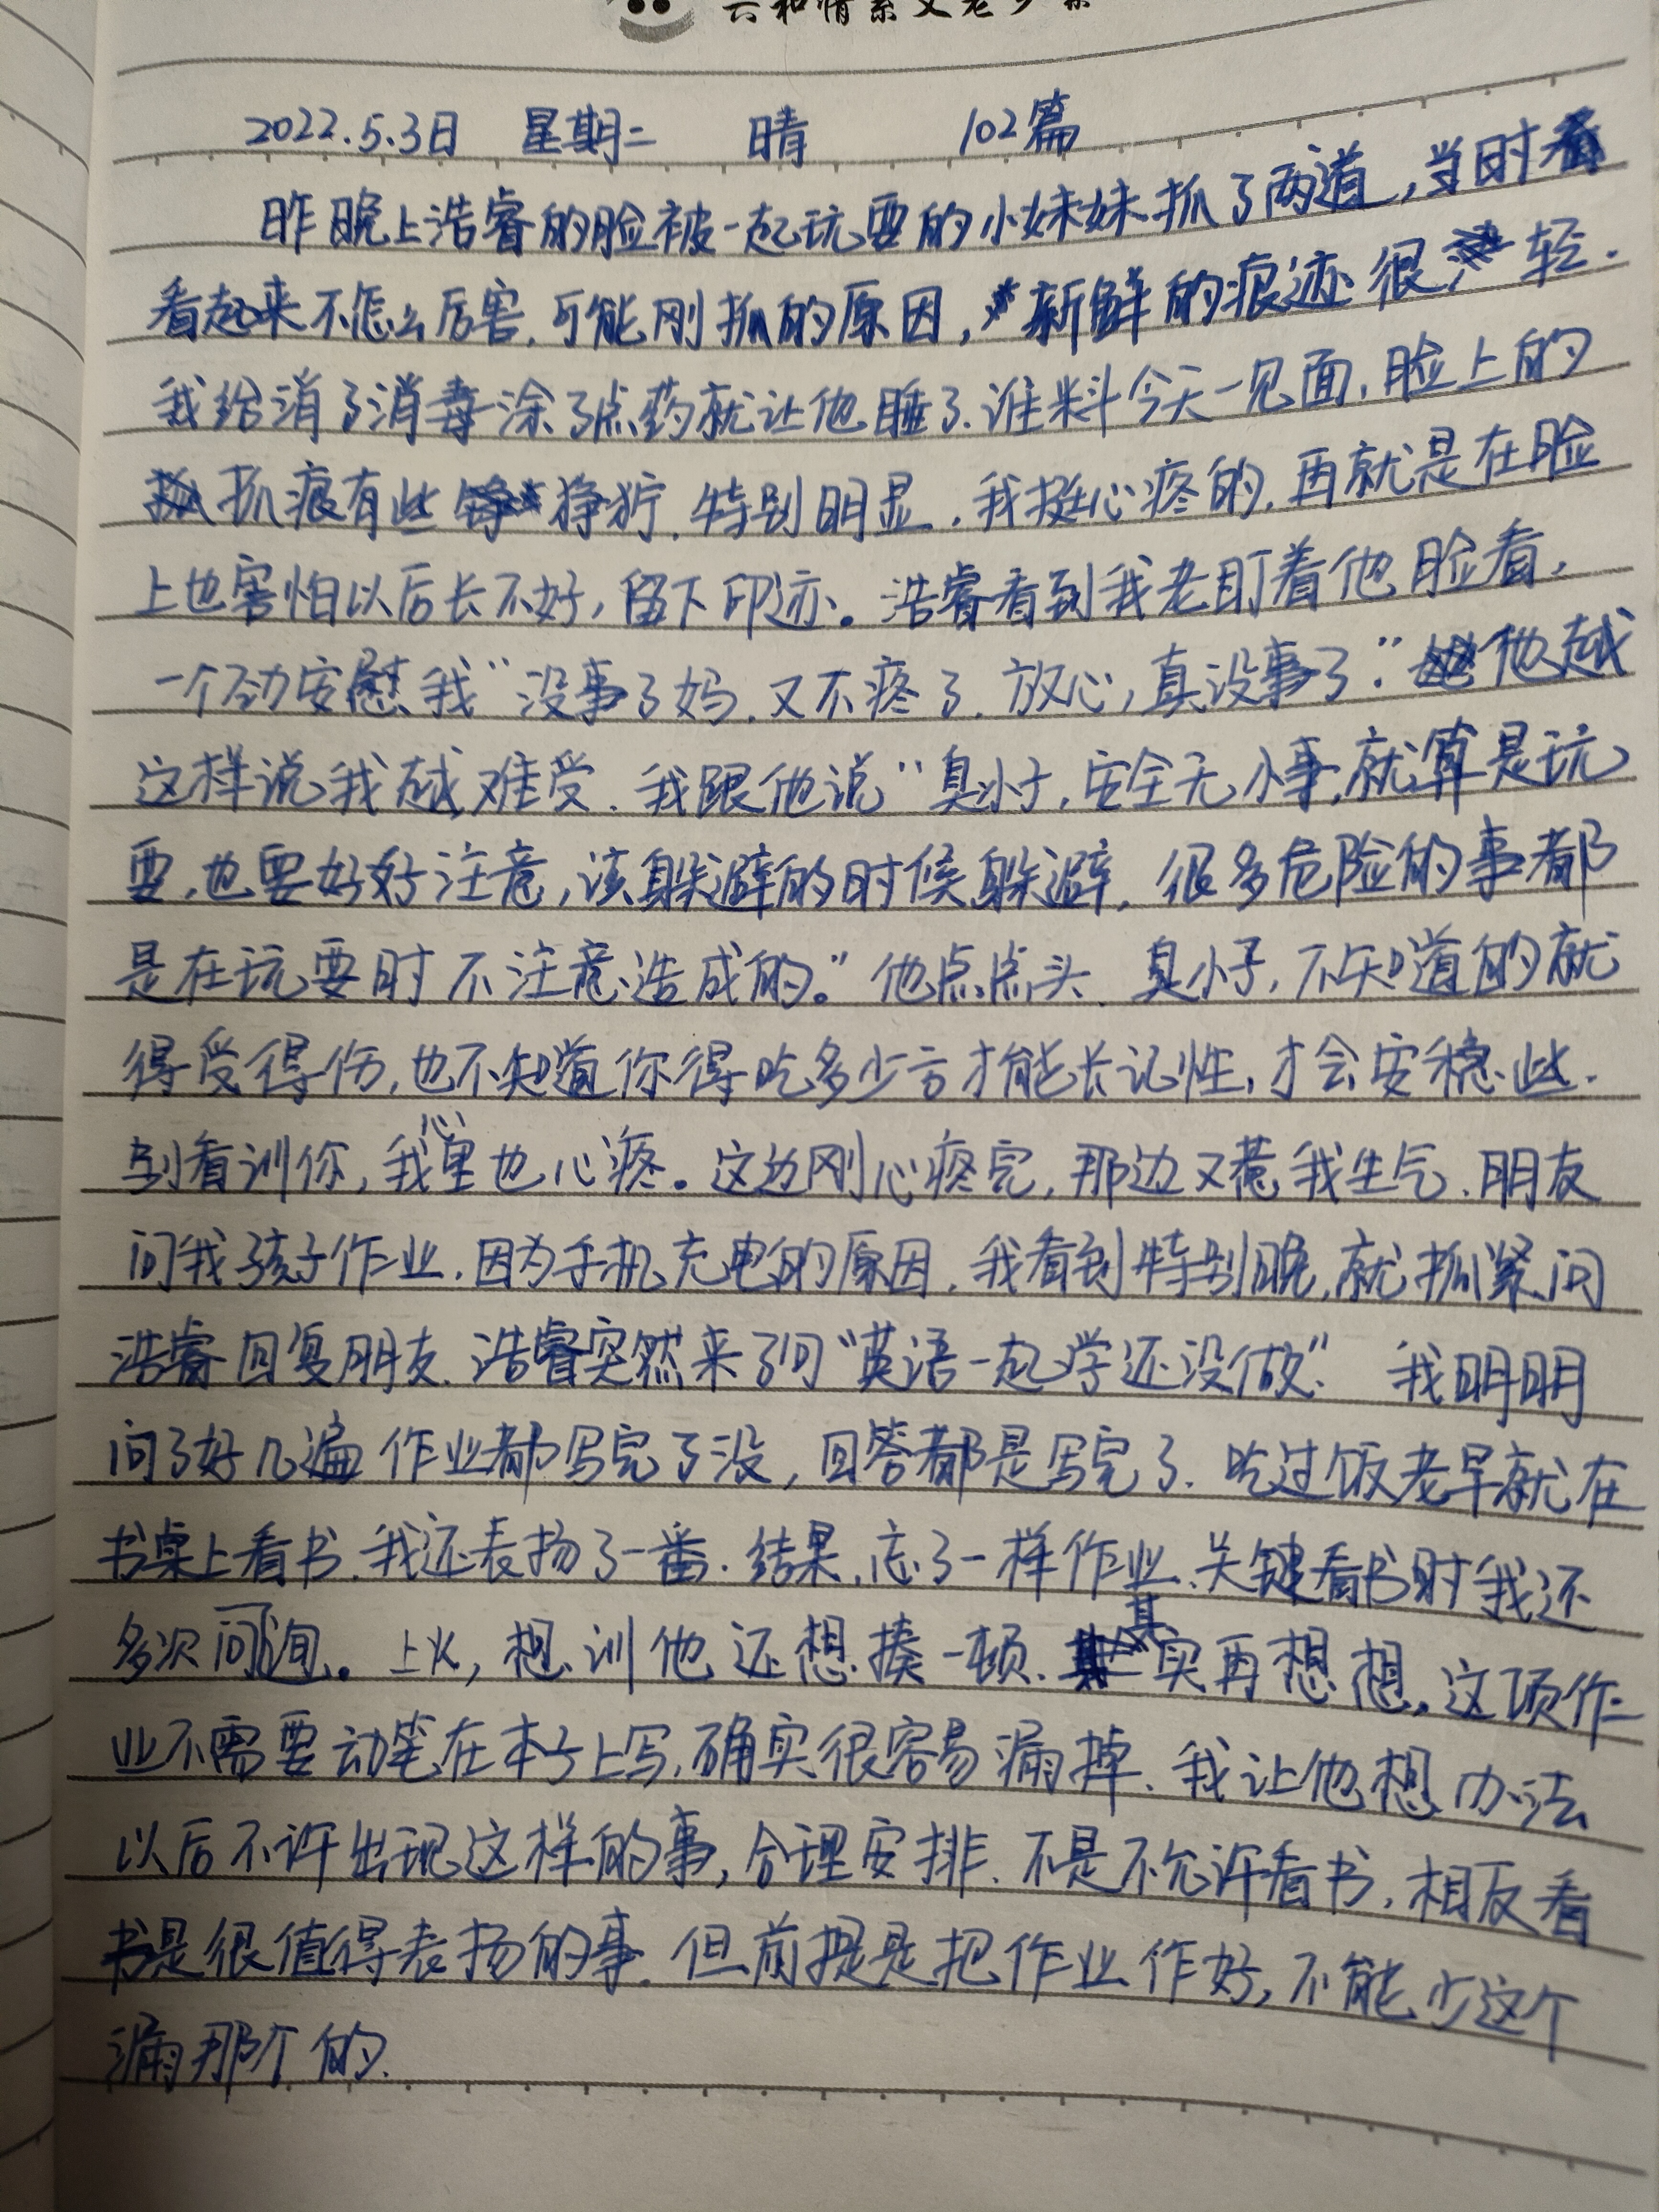 2022.5.3日 星期二 晴 102篇
昨晚上浩睿的脸被一起玩耍的小妹妹抓了两道，当时看
看起来不怎么厉害，可能刚抓的原因，新鲜的痕迹很轻.
我给消了消毒涂了点药就让他睡了.谁料今天一见面，脸上的
抓痕有些狰狞.特别明显.我挺心疼的，再就是在脸
上也害怕以后长不好，留下印迹。浩睿看到我老盯着他脸看，
一个劲安慰我“没事了妈.又不疼了.放心，真没事了.”他越
这样说我越难受.我跟他说“臭小子，安全无小事，就算是玩
耍，也要好好注意，该躲避的时候躲避，很多危险的事都
是在玩耍时不注意造成的。”他点点头.臭小子，不知道的就
得受得伤，也不知道你得吃多少亏才能长记性，才会安稳些.
别看训你，我心里也心疼。这边刚心疼完，那边又惹我生气.朋友
问我孩子作业.因为手机充电的原因，我看到特别晚，就抓紧问
浩睿回复朋友.浩睿突然来了句“英语一起学还没做.”我明明
问了好几遍作业都写完了没，回答都是写完了.吃过饭老早就在
书桌上看书.我还表扬了一番.结果，忘了一样作业.关键看书时我还
多次问询。上火，想训他还想揍一顿.其实再想想，这项作
业不需要动笔在本子上写，确实很容易漏掉.我让他想办法
以后不许出现这样的事，合理安排.不是不允许看书，相反看
书是很值得表扬的事.但前提是把作业作好，不能少这个
漏那个的.